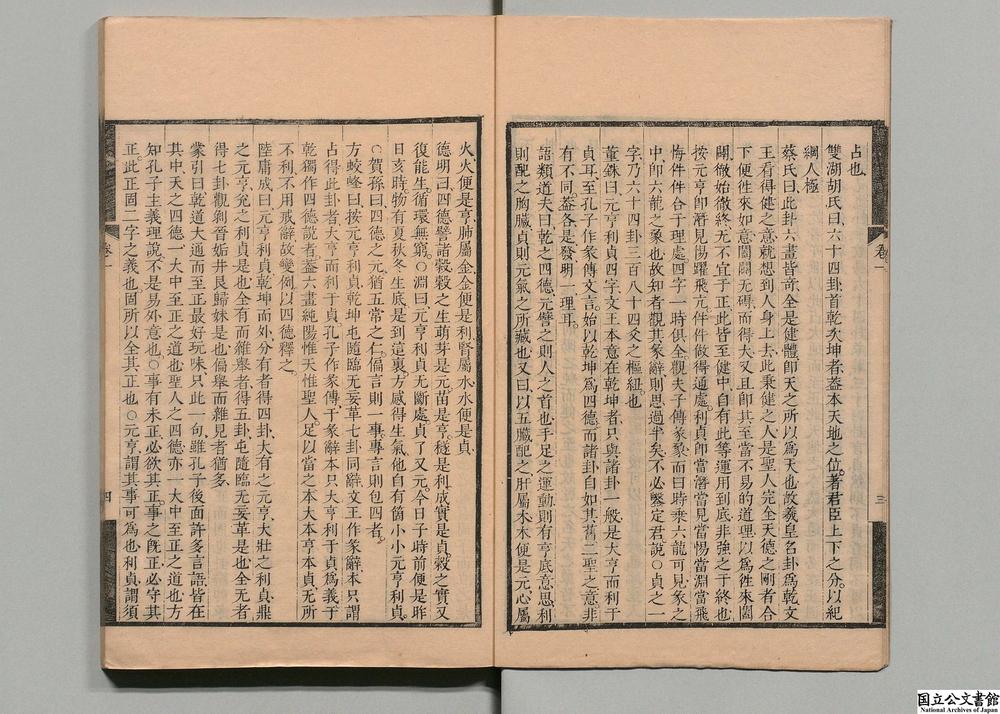 占也
雙湖胡氏曰六十四卦首乾次坤者蓋本天地之位著君臣上下之分以紀
綱人極
蔡氏曰此卦六畫皆奇全是健體卽天之所以爲天也故羲皇名卦爲乾文
王看得健之意就想到人身上去此秉健之人是聖人完全天德之剛者合
下便徃來如意闔闢無碍而得大又且卽其至當不易的道理以爲徃來闔
闢徹始徹終无不宜于正此皆至健中自有此等運用到底非強之于終也
按元亨卽潛見惕躍飛亢件件做得通處利貞卽當潛當見當惕當淵當飛
悔件件合于理處四字一時俱全觀夫子傳彖象而曰時乘六龍可見彖之
中卽六龍之象也故知者觀其彖辭則思過半矣不必鑿定君說○貞之一
字乃六十四卦三百八十四爻之樞紐也
董銖曰元亨利貞四字文王本意在乾坤者只與諸卦一般是大亨而利于
貞耳至孔子作彖傳文言始以乾坤爲四德而諸卦自如其舊二聖之意非
有不同蓋各是發明一理耳
語類道夫曰乾之四德元譬之則人之首也手足之運動則有亨底意思利
則配之胸臟貞則元氣之所藏也又曰以五臟配之肝屬木木便是元心屬
卷一
三
火火便是亨肺屬金金便是利腎屬水水便是貞
德明曰四德譬諸穀穀之生萌芽是元苗是亨穟是利成實是貞穀之實又
復能生循環無窮○淵曰元亨利貞无斷處貞了又元今日子時前便是昨
日亥時物有夏秋冬生底是到這裏方感得生氣他自有箇小小元亨利貞
○賀孫曰四德之元猶五常之仁偏言則一事專言則包四者
方蛟峰曰按元亨利貞乾坤屯隨臨无妄革七卦同辭文王作彖辭本只謂
占得此卦者大亨而利于貞孔子作彖傳于彖辭本只大亨利于貞爲義于
乾獨作四德說者蓋六畫純陽惟天惟聖人足以當之本大本亨本貞无所
不利不用戒辭故變例以四德釋之
陸庸成曰元亨利貞乾坤而外分有者得四卦大有之元亨大壯之利貞鼎
之元亨兌之利貞是也全有而雜舉者得五卦屯隨臨无妄革是也全无者
得七卦觀剝晉姤井艮歸妹是也偏舉而雜見者猶多
蒙引曰乾道大通而至正最好玩味只此一句雖孔子後面許多言語皆在
其中天之四德一大中至正之道也聖人之四德亦一大中至正之道也方
知孔子主義理說不是易外意也○事有未正必欲其正事之旣正必守其
正此正固二字之義也固所以全其正也○元亨謂其事可爲也利貞謂須
卷一
四
国立公文書館
National Archives of Japan